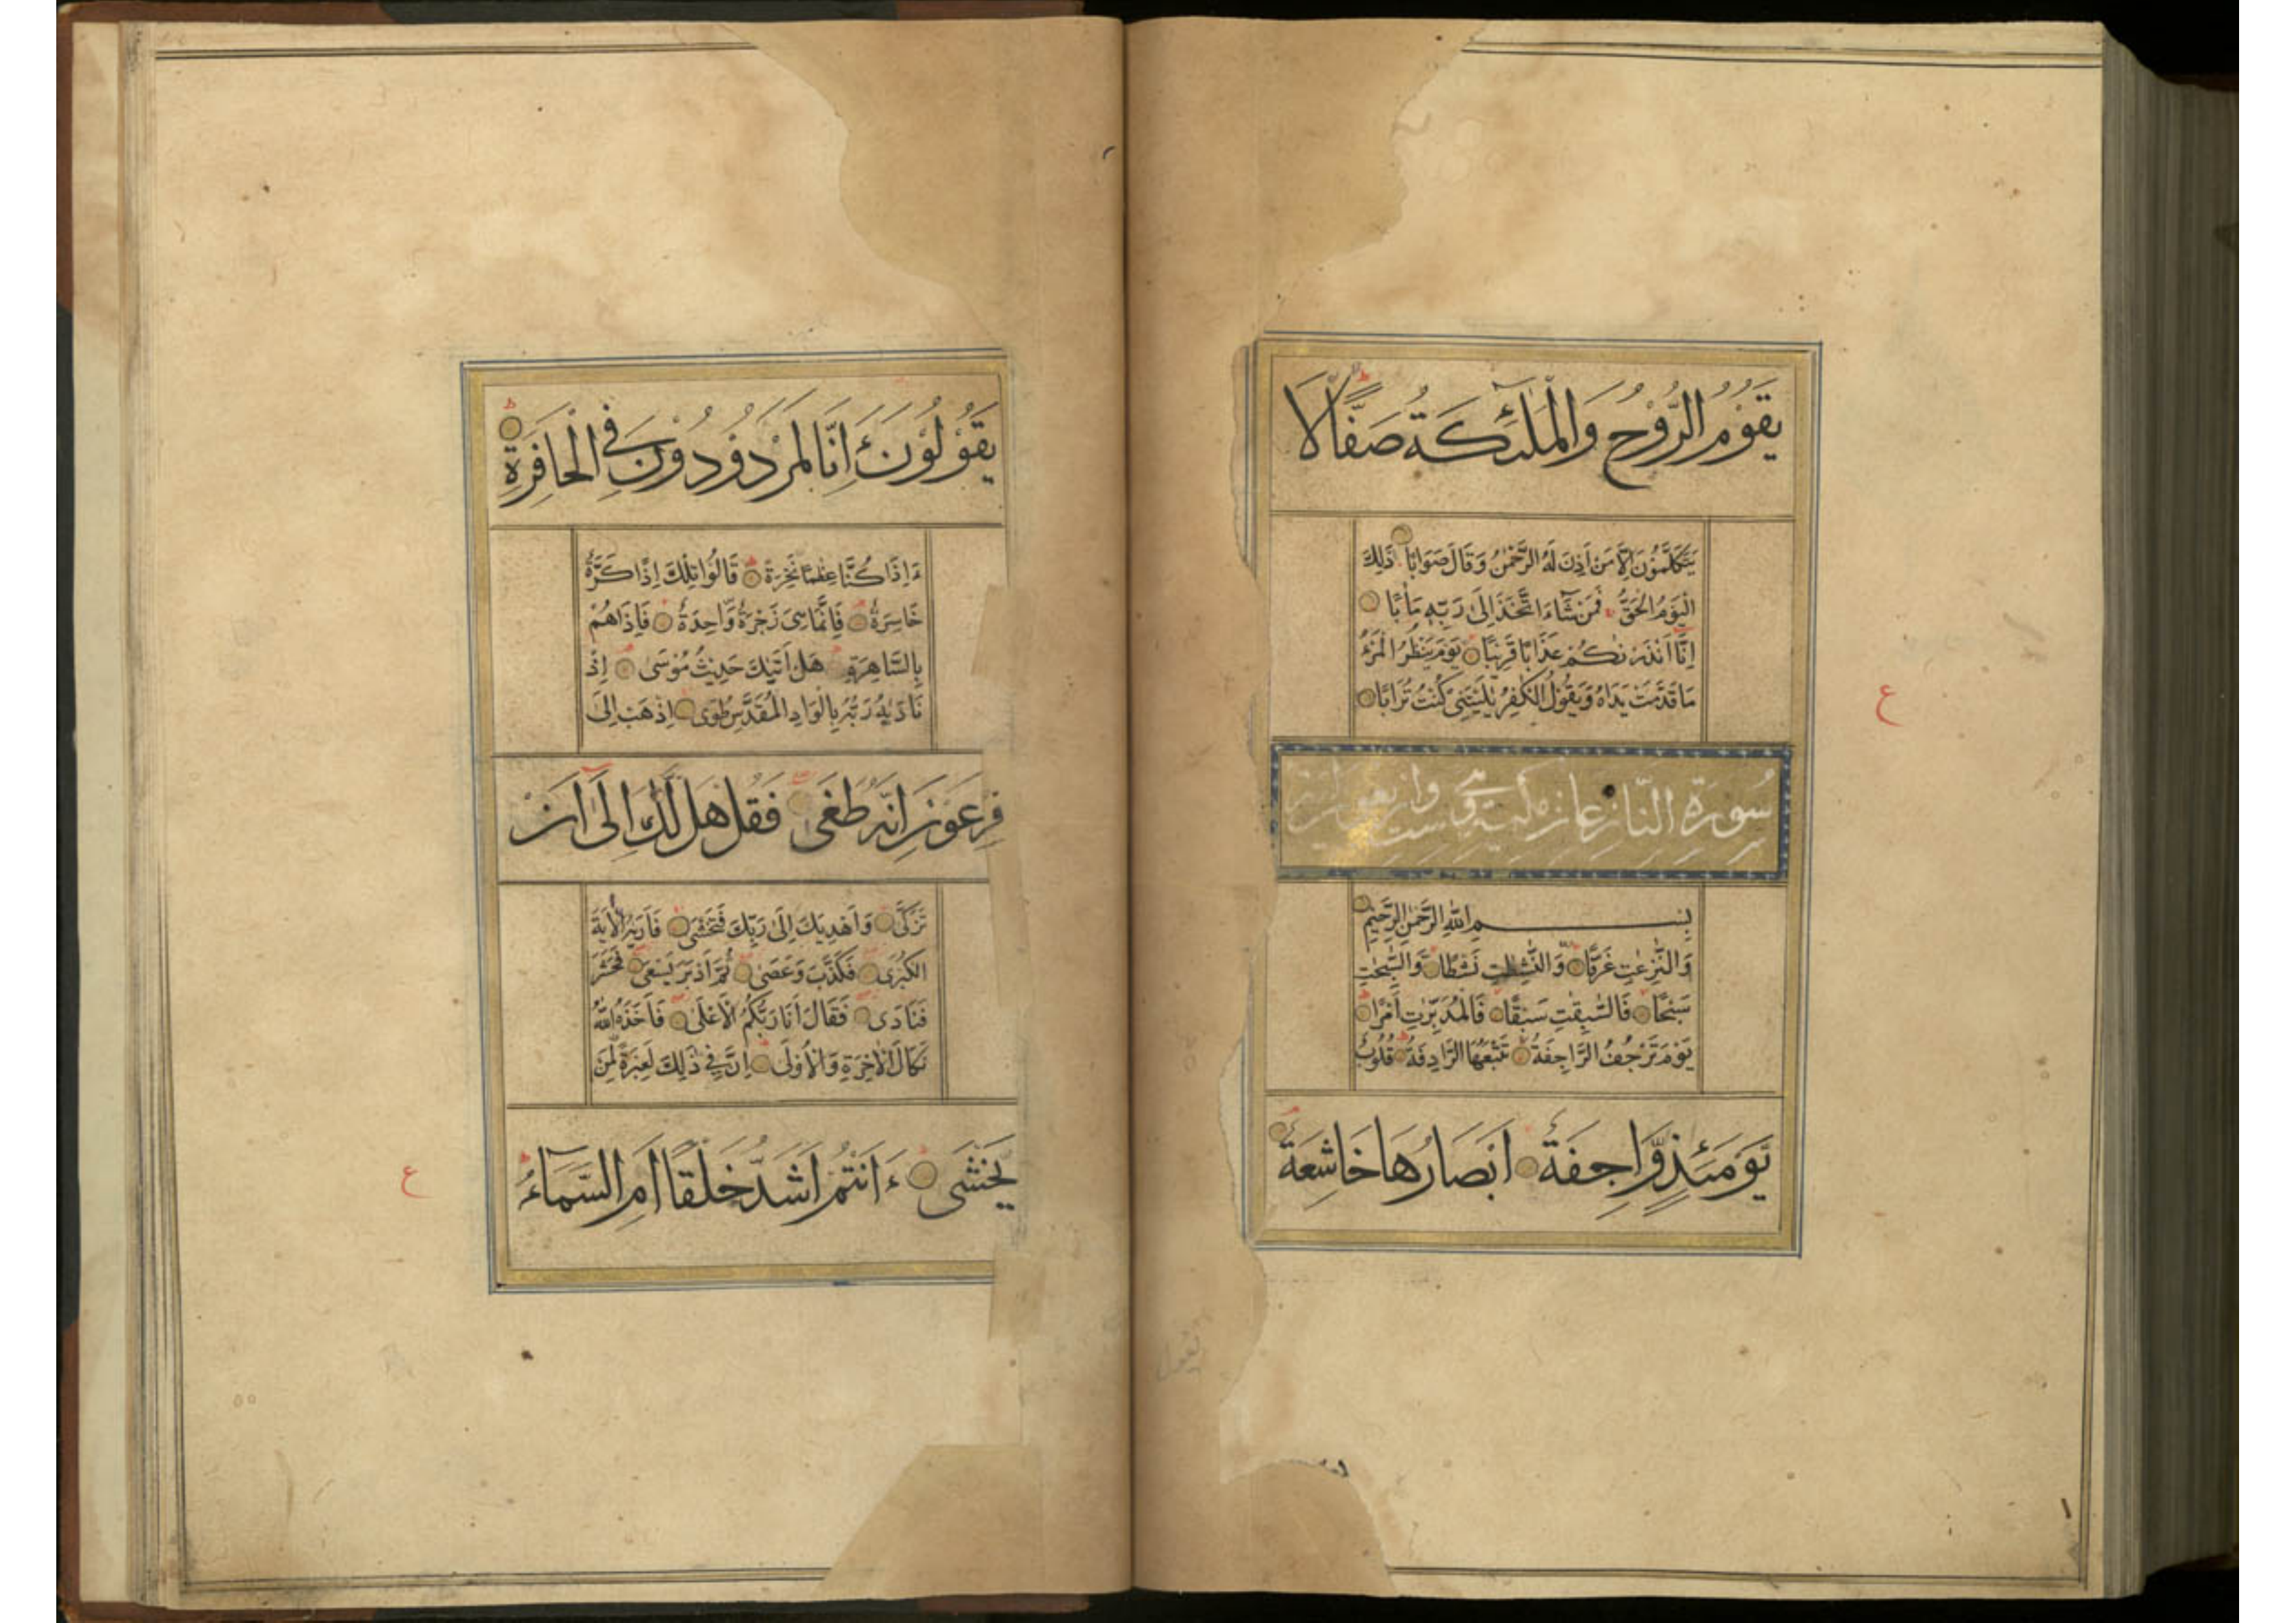 يَقُوْمُ الرُّوْحُ وَالْمَلٰٓئِكَةُ صَفًّا لَا
يَتَكَلَّمُوْنَ اِلَّا مَنْ اَذِنَ لَهُ الرَّحْمٰنُ وَقَالَ صَوَابًا ذٰلِكَ
الْيَوْمُ الْحَقُّ فَمَنْ شَآءَ اتَّخَذَ اِلٰى رَبِّهٖ مَاٰبًا
اِنَّا اَنْذَرْنٰكُمْ عَذَابًا قَرِيْبًا يَوْمَ يَنْظُرُ الْمَرْءُ
مَا قَدَّمَتْ يَدَاهُ وَيَقُوْلُ الْكٰفِرُ يٰلَيْتَنِيْ كُنْتُ تُرَابًا
سُورَةِ النَّازِعَات مكية وهي ست واربعون آية
بِسْمِ اللّٰهِ الرَّحْمٰنِ الرَّحِيْمِ
وَالنّٰزِعٰتِ غَرْقًا وَّالنّٰشِطٰتِ نَشْطًا وَّالسّٰبِحٰتِ
سَبْحًا فَالسّٰبِقٰتِ سَبْقًا فَالْمُدَبِّرٰتِ اَمْرًا
يَوْمَ تَرْجُفُ الرَّاجِفَةُ تَتْبَعُهَا الرَّادِفَةُ قُلُوْبٌ
يَّوْمَئِذٍ وَّاجِفَةٌ اَبْصَارُهَا خَاشِعَةٌ
ع
يَقُوْلُوْنَ ءَاِنَّا لَمَرْدُوْدُوْنَ فِي الْحَافِرَةِ
ءَاِذَا كُنَّا عِظٰمًا نَّخِرَةً قَالُوْا تِلْكَ اِذًا كَرَّةٌ
خَاسِرَةٌ فَاِنَّمَا هِيَ زَجْرَةٌ وَّاحِدَةٌ فَاِذَا هُمْ
بِالسَّاهِرَةِ هَلْ اَتٰىكَ حَدِيْثُ مُوْسٰى اِذْ
نَادٰىهُ رَبُّهٗ بِالْوَادِ الْمُقَدَّسِ طُوًى اِذْهَبْ اِلٰى
فِرْعَوْنَ اِنَّهٗ طَغٰى فَقُلْ هَلْ لَّكَ اِلٰى اَنْ
تَزَكّٰى وَاَهْدِيَكَ اِلٰى رَبِّكَ فَتَخْشٰى فَاَرٰىهُ الْاٰيَةَ
الْكُبْرٰى فَكَذَّبَ وَعَصٰى ثُمَّ اَدْبَرَ يَسْعٰى فَحَشَرَ
فَنَادٰى فَقَالَ اَنَا رَبُّكُمُ الْاَعْلٰى فَاَخَذَهُ اللّٰهُ
نَكَالَ الْاٰخِرَةِ وَالْاُوْلٰى اِنَّ فِيْ ذٰلِكَ لَعِبْرَةً لِّمَنْ
يَّخْشٰى ءَاَنْتُمْ اَشَدُّ خَلْقًا اَمِ السَّمَآءُ
ع